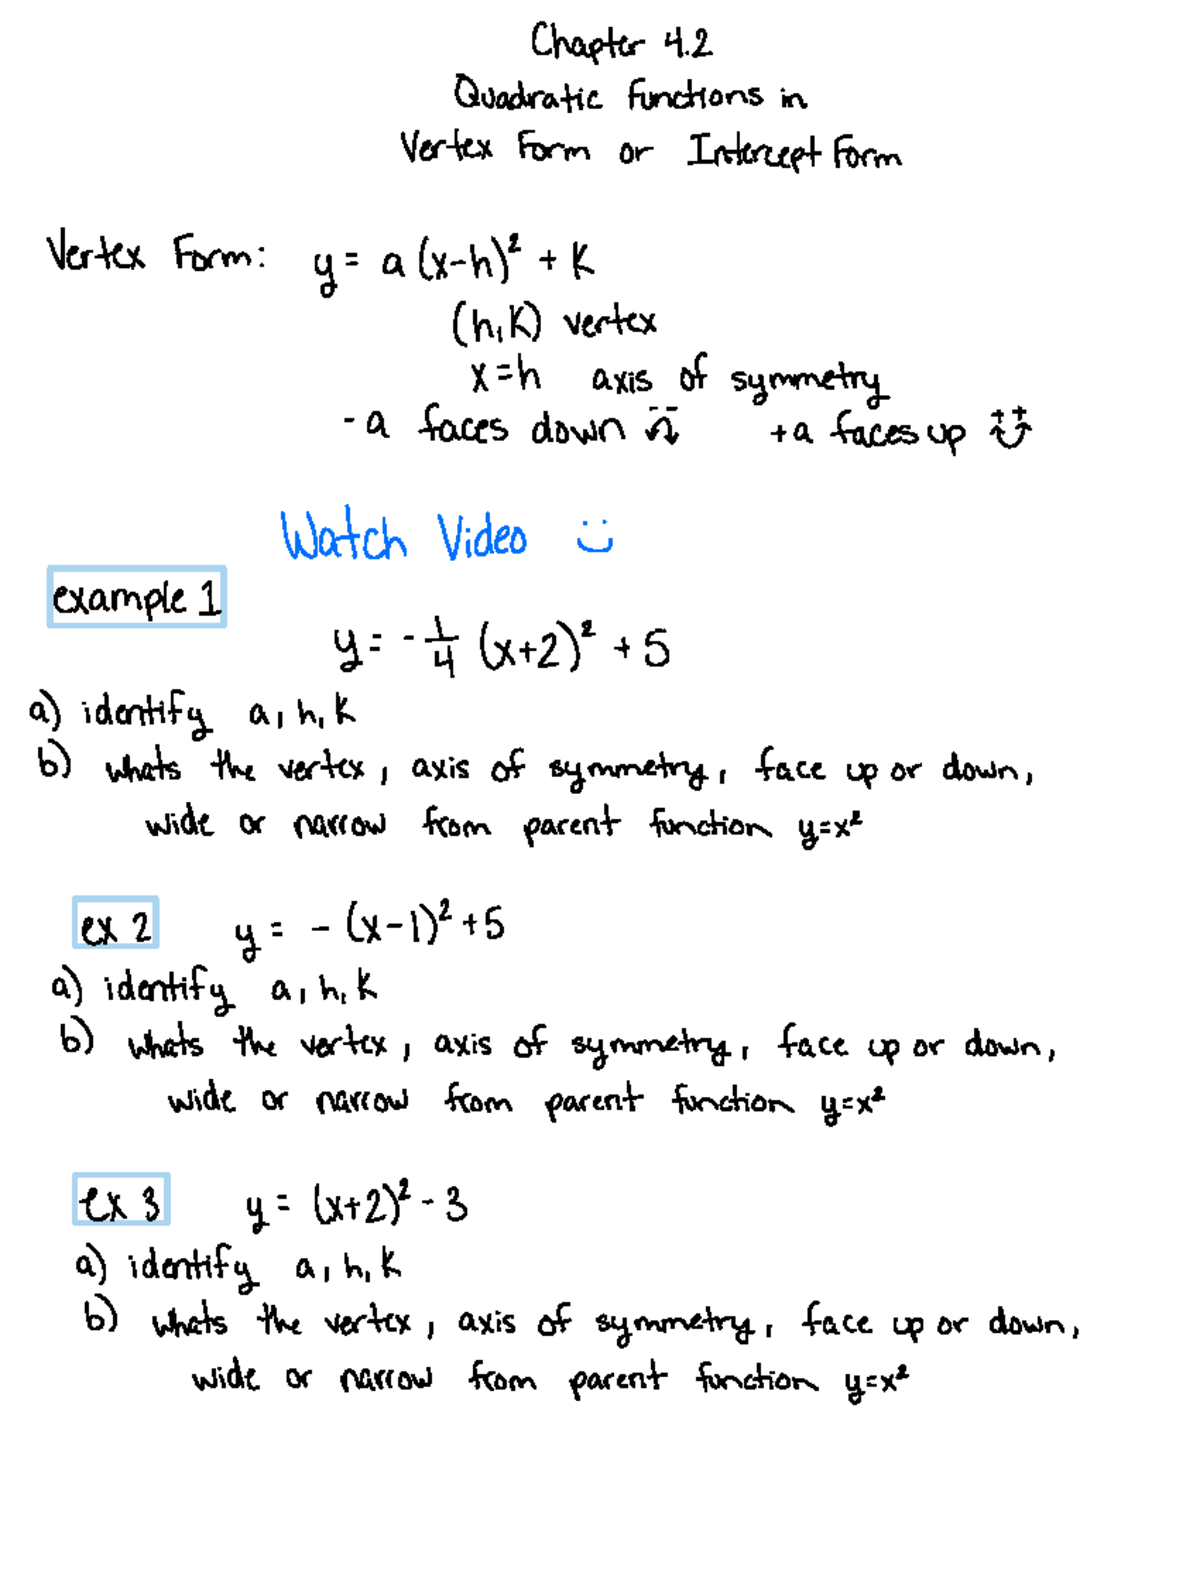 Chapter 4.2
Quadratic Functions in
Vertex Form or Intercept Form
Vertex Form: y = a (x-h)² + K
(h,K) vertex
x=h axis of symmetry
-a faces down +a faces up
Watch Video
example 1
y = -1/4 (x+2)² + 5
a) identify a, h, K
b) whats the vertex, axis of symmetry, face up or down,
wide or narrow from parent function y=x²
ex 2 y = - (x-1)² +5
a) identify a, h, K
b) whats the vertex, axis of symmetry, face up or down,
wide or narrow from parent function y=x²
ex 3 y = (x+2)² - 3
a) identify a, h, K
b) whats the vertex, axis of symmetry, face up or down,
wide or narrow from parent function y=x²